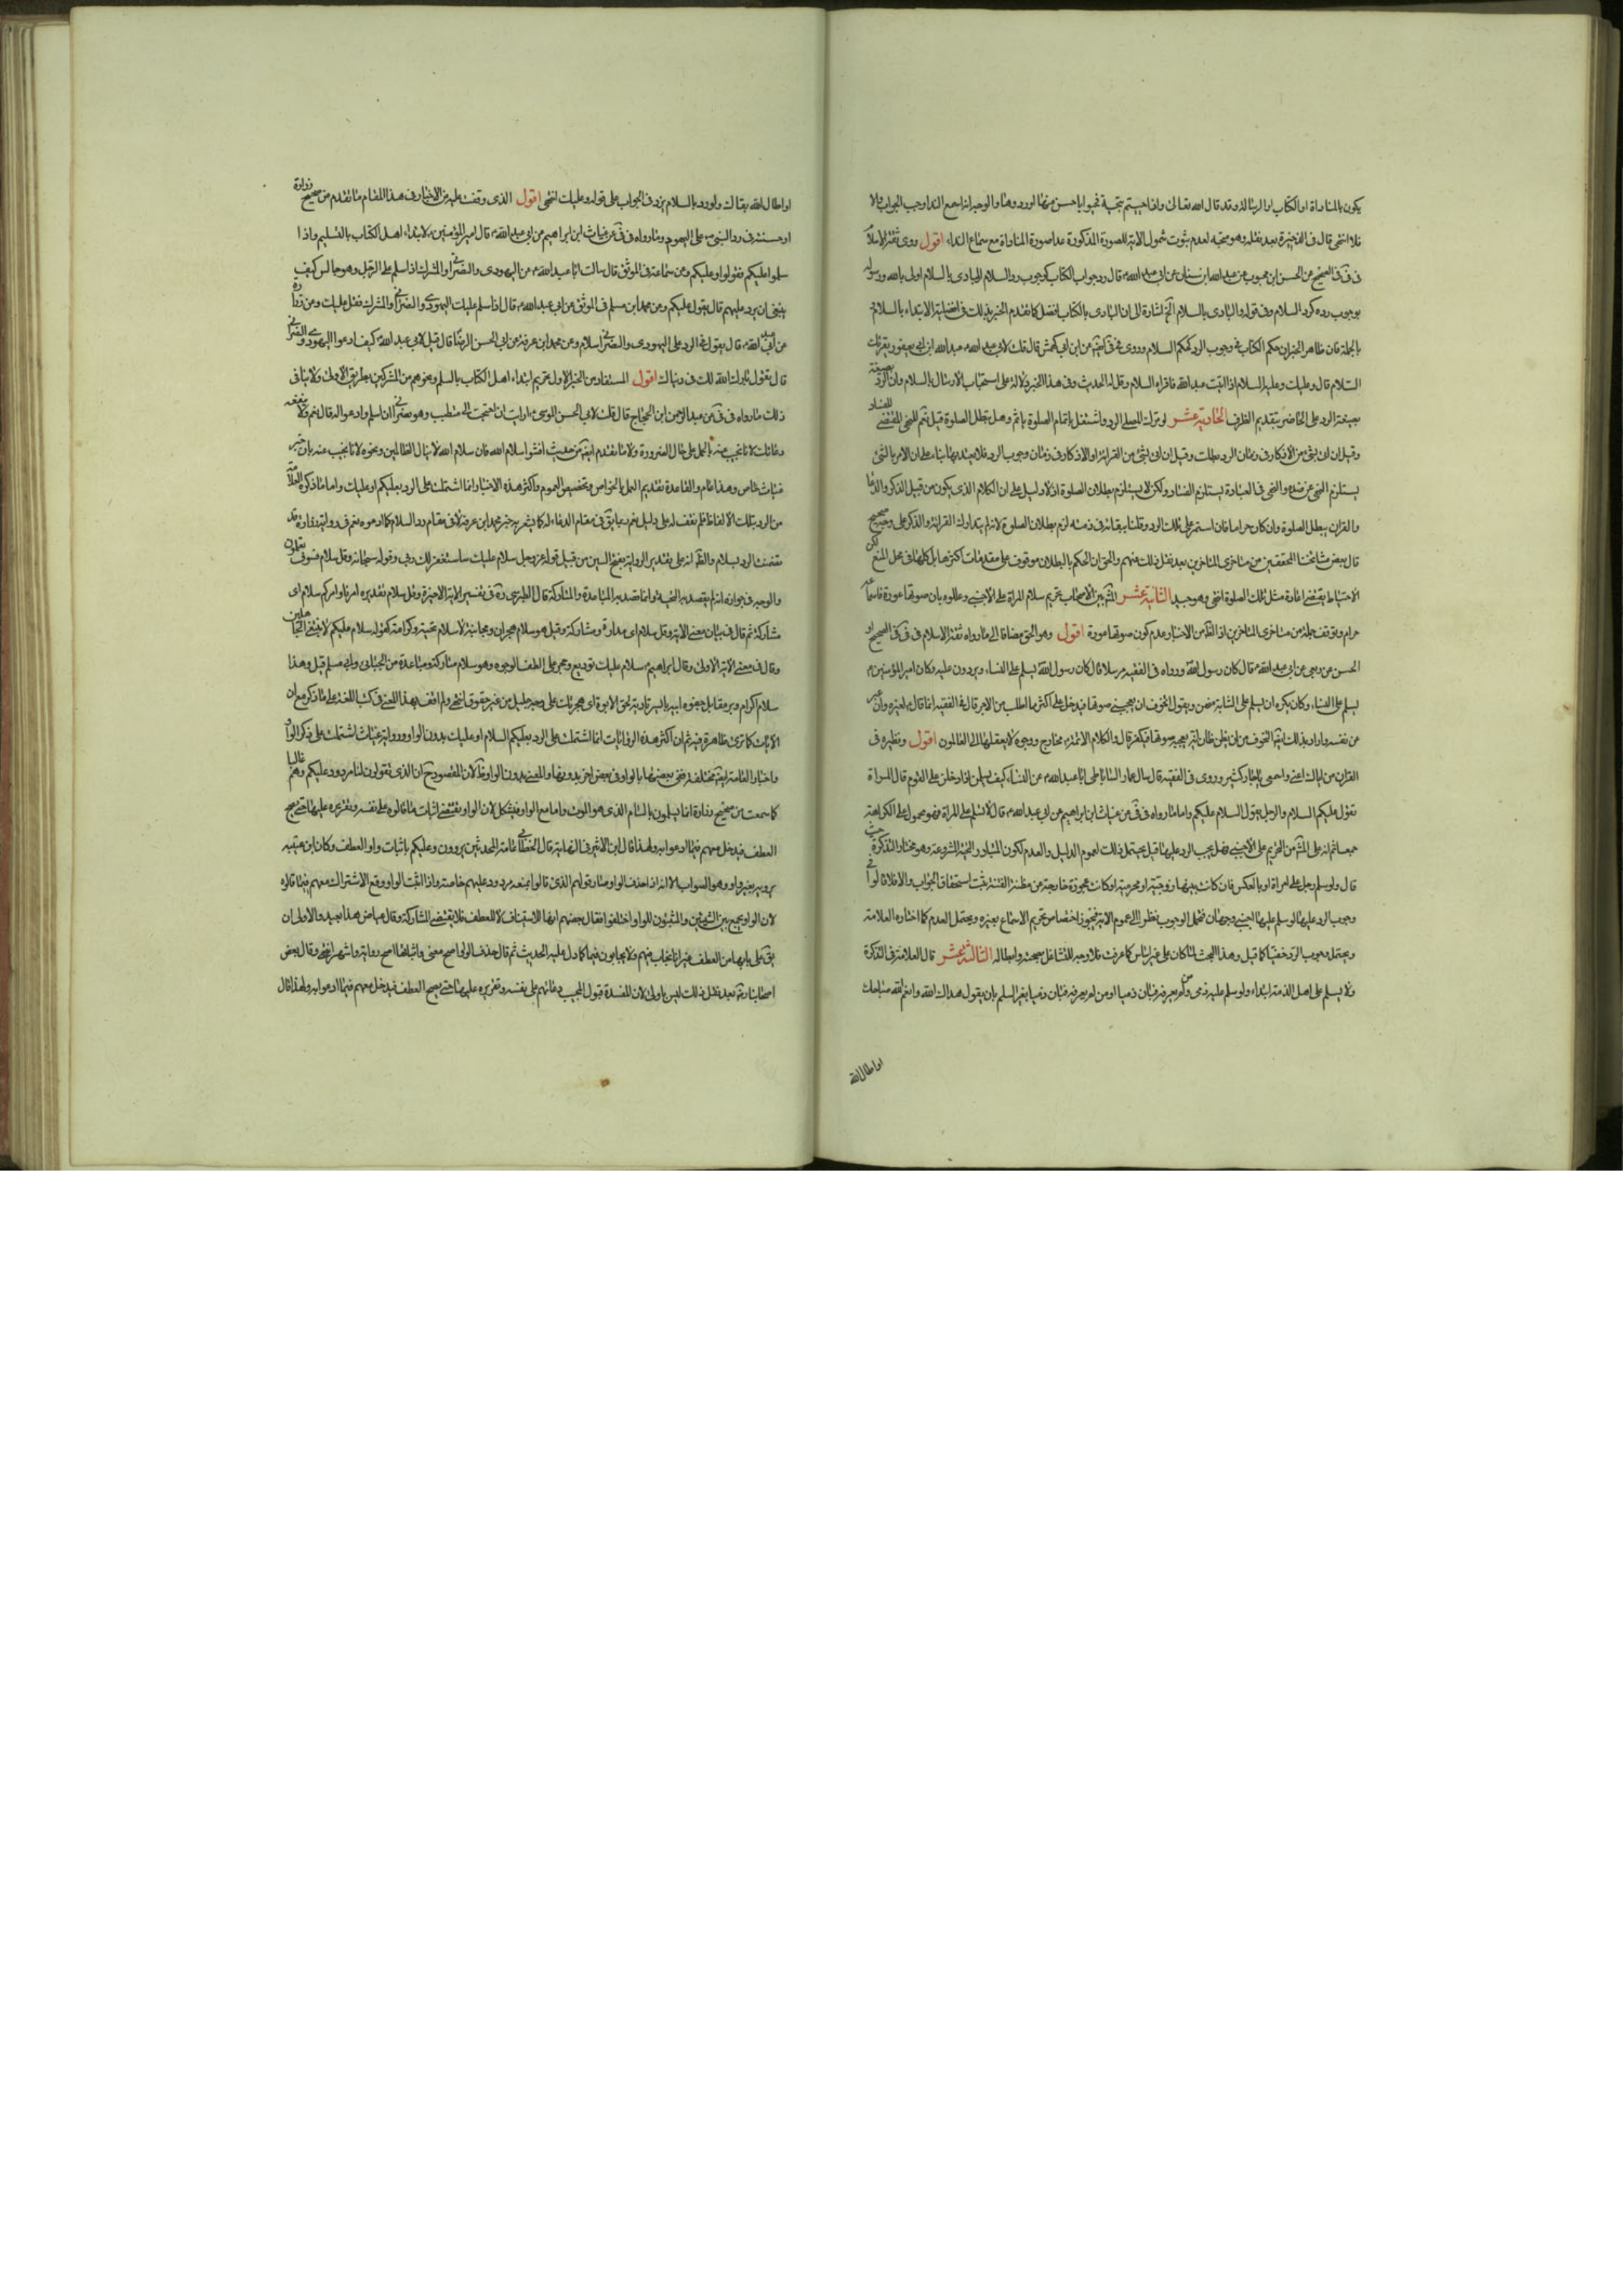 يكون بالمناداة او الكتاب او الرسالة وقد قال الله تعالى واذا حييتم بتحية فحيوا باحسن منها او ردوها والوجه انه اجمع النداء وجب الجواب والا
فلا انتهى قال في الذخيرة بعد نقله وهو متجه لعدم ثبوت شمول الاية للصورة المذكورة عدا صورة المناداة مع سماع النداء اقول روى ثقة الاسلام
في في الصحيح عن الحسن ابن محبوب عن عبد الله ابن سنان عن ابي عبد الله ع قال رد جواب الكتاب كوجوب رد السلام والبادي بالسلام اولى بالله ورسوله
بوجوب رده كرد السلام وفي قوله والبادي بالسلام الخ اشارة الى ان البادي بالكتاب افضل كما تقدم الخبر بذلك في افضلية الابتداء بالسلام
بالجملة فان ظاهر الخبر ان حكم الكتاب في وجوب الرد كحكم السلام وروى في في ايضا عن ابن ابي كهمش قال قلت لابي عبد الله ع عبد الله ابن ابي يعفور يقرئك
السلام قال وعليك وعليه السلام اذا اتيت عبد الله فاقراه السلام وقل له الحديث وفي هذا الخبر دلالة على استحباب الارسال بالسلام وان الرد بصيغة
بصيغة الرد على الحاضر بتقديم الظرف الحادية عشر لو ترك المصلي الرد واشتغل باتمام الصلوة ياثم وهل تبطل الصلوة قيل نعم للنهي المقتضي للفساد
وقيل ان اتى بشئ من الاذكار في زمان الرد بطلت وقيل ان اتى بشئ من القراءة او الاذكار في زمان وجوب الرد فلا يعتد بها بناء على ان الامر بالشئ
يستلزم النهي عن ضده والنهي في العبادة يستلزم الفساد ولكن لا يستلزم بطلان الصلوة اذ لا دليل على ان الكلام الذي يكون من قبيل الذكر والدعا
والقران يبطل الصلوة وان كان حراما فان استمر على ترك الرد وقلنا ببقائه في ذمته لزم بطلان الصلوة لانه لم يتدارك القراءة والذكر على وجه صحيح
قال بعض مشايخنا المحققين من متاخري المتاخرين بعد نقل ذلك عنهم والحق ان الحكم بالبطلان موقوف على مقدمات اكثرها بل كلها في محل المنع لكن
الاحتياط يقتضي اعادة مثل تلك الصلوة انتهى وهو جيد الثانية عشر المشهور بين الاصحاب تحريم سلام المراة على الاجنبي وعللوه بان صوتها عورة فاسماعه
حرام وتوقف جملة من متاخري المتاخرين اذ الظاهر من الاخبار عدم كون صوتها عورة اقول وهو الحق مضافا الى ما رواه ثقة الاسلام في في في الصحيح او
الحسن عن ربعي عن ابي عبد الله ع قال كان رسول الله ورواه في الفقيه مرسلا قال كان رسول الله يسلم على النساء ويرددن عليه وكان امير المؤمنين ع
يسلم على النساء وكان يكره ان يسلم على الشابة منهن ويقول اتخوف ان يعجبني صوتها فيدخل علي اكثر مما اطلب من الاجر قال في الفقيه انما قال ع لغيره وان عبر
عن نفسه واراد بذلك ايضا التخوف من ان يظن ظان انه يعجبه صوتها فيكفر قال والكلام الائمة ع مخارج ووجوه لا يعقلها الا العالمون اقول ونظيره في
القران من اياك اعني واسمعي يا جارة كثير وروى في الفقيه قال سال عمار الساباطي ابا عبد الله ع عن النساء كيف يسلمن اذا دخلن على القوم قال المراة
تقول عليكم السلام والرجل يقول السلام عليكم واما ما رواه في في عن غياث ابن ابراهيم عن ابي عبد الله ع قال لا تسلم على المراة فهو محمول على الكراهة
جمعا ثم انه على المشهور من التحريم على الاجنبي فهل يجب الرد عليها قيل يحتمل ذلك لعموم الدليل والعدم لكون المتبادر التحية المشروعة وهو مختار التذكرة حيث
قال ولو سلم رجل على امراة او بالعكس فان كانت بينهما زوجية او محرمية او كانت عجوزة خارجة عن مظنة الفتنة ثبت استحقاق الجواب والا فلا قالوا في
وجوب الرد عليها لو سلم عليها اجنبي وجهان فيحتمل الوجوب نظرا الى عموم الاية فيجوز اختصاص تحريم الاسماع بغيره ويحتمل العدم كما اختاره العلامة
ويحتمل وجوب الرد خفيا كما قيل وهذا البحث لما كان على غير اساس كما عرفت فلا وجه للتشاغل بصحته وابطاله الثالثة عشر قال العلامة في التذكرة
ولا يسلم على اهل الذمة ابتداء ولو سلم عليه ذمي او من لم يعرفه فبان ذميا رد بغير السلم بان يقول هداك الله وانعم الله صباحك
او اطال الله
او اطال الله بقاك ولو رد بالسلام لم يزد في الجواب على قوله وعليك انتهى اقول الذي وقفت عليه من الاخبار في هذا المقام ما تقدم من صحيح زرارة
او حسنته في رد النبي ص على اليهود وما رواه في في عن غياث ابن ابراهيم عن ابي عبد الله ع قال امير المؤمنين ع لا تبتدءوا اهل الكتاب بالتسليم واذا
سلموا عليكم فقولوا وعليكم وعن سماعة في الموثق قال سالت ابا عبد الله ع عن اليهودي والنصراني والمشرك اذا سلم على الرجل وهو جالس كيف
ينبغي ان يرد عليهم قال يقول عليكم وعن محمد ابن مسلم في الموثق عن ابي عبد الله ع قال اذا سلم عليك اليهودي والنصراني والمشرك فقل عليك وعن زرارة
عن ابي عبد الله ع قال يقول في الرد على اليهودي والنصراني سلام وعن محمد ابن عرفة عن ابي الحسن الرضا قال قيل لابي عبد الله ع كيف ادعوا لليهودي والنصراني
قال تقول بارك الله لك في دنياك اقول المستفاد من الخبر الاول تحريم ابتداء اهل الكتاب بالسلم وغيرهم من المشركين بطريق الاولى ولا ينافي
ذلك ما رواه في في عن عبد الرحمن ابن الحجاج قال قلت لابي الحسن الموسى ع ارايت ان احتجت الى متطبب وهو نصراني ان اسلم وادعو له قال نعم ولا ينفعه
دعائك لانا نجيب عنه بالحمل على حال الضرورة ولا ما تقدم ايضا من حديث افشوا سلام الله فان سلام الله لا ينال الظالمين ونحوه لانا نجيب عنه بان خبر
غياث خاص وهذا عام والقاعدة تقديم العمل بالخاص وتخصيص العموم واكثر هذه الاخبار انما اشتملت على الرد بعليكم او عليك واما ما ذكره العلامة
من الرد بتلك الالفاظ فلم نقف له على دليل نعم ربما يقع في مقام الدعاء له كما يشير به خبر محمد ابن عرفة لا في مقام رد السلام كما ادعوه نعم في رواية زرارة قد
تضمنت الرد بسلام والظاهر انه على تقدير الرواية بفتح السين من قبيل قوله عز وجل سلام عليك ساستغفر لك ربي وقوله سبحانه وقل سلام فسوف يعلمون
والوجه في جوازه انه لم يقصد به التحية وانما قصد به المباعدة والمتاركة قال الطبرسي ره في تفسير الاية الاخيرة وقل سلام تقديره امرنا وامركم سلام اي
متاركة ثم قال في بيان معنى الاية وقل سلام اي مداراة ومتاركة وقيل هو سلام هجران ومجانبة لا سلام تحية وكرامة كقوله سلام عليكم لا نبتغي الجاهلين
وقال في معنى الاية الاولى وقال ابراهيم ع سلام عليك توديع وهجر على الطف الوجوه وهو سلام متاركة ومباعدة من الجبائي وابي مسلم قيل وهذا
سلام اكرام وبر مقابل جفوه ابيه بالبر تادية لحق الابوة اي هجرتك على وجه جميل من غير عقوق انتهى ولم اقف بهذا المعنى في كتب اللغة على ما ذكر مع ان
الايات كما ترى ظاهرة فيه ثم ان اكثر هذه الروايات انما اشتملت على الرد بعليكم السلام او عليك بدون الواو ورواية غياث اشتملت على ذكر الواو
واخبار العامة ايضا مختلفة ففي بعضها بالواو وفي بعض اخر بدونها والمعنى بدون الواو ظاهر لان المقصود ح ان الذي تقولون لنا مردود عليكم وهم غالبا
كما سمعت من صحيح زرارة انما يسلمون بالسام الذي هو الموت واما مع الواو فيشكل لان الواو يقتضي اثبات ما قالوه على نفسه وتقريره عليها حتى يصح
العطف فيدخل معهم فيما ادعوا به ولهذا قال ابن الاثير في النهاية قال الخطابي عامة المحدثين يروون وعليكم باثبات واو العطف وكان ابن عيينة
يرويه بغير واو وهو الصواب لانه اذا حذف الواو صار قولهم الذي قالوا بعينه مردود عليهم خاصة واذا اثبت الواو وقع الاشتراك معهم فيما قالوه
لان الواو يجمع بين الشيئين والمثبتون للواو اختلفوا فقال بعضهم انها للاستيناف لا للعطف فلا يقتضي المشاركة وقال عياض هذا بعيد والاولى ان
يق على بابها من العطف غير انا نجاب فيهم ولا يجابون فينا كما دل عليه الحديث ثم قال حذف الواو اصح معنى واثباتها اصح رواية واشهر انتهى وقال بعض
اصحابنا ره بعد نقل ذلك ليس باولى لان المفسدة قبول المجيب دعائهم على نفسه وتقريره عليها حتى يصح العطف فيدخل معهم فيما ادعوا به ولهذا قال